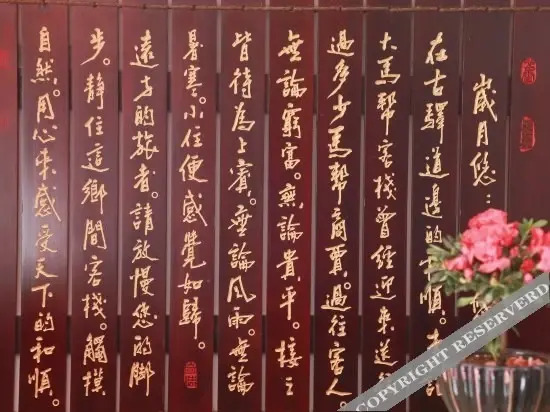 歲月悠
在古驛道邊的和順。大
大馬幫客棧曾經迎來送
過多少馬幫商賈。過往客人。
無論窮富。無論貴平。接之
皆待為上賓。無論風雨。無論
暑寒。小住便感覺如歸。
遠方的旅者。請放慢您的腳
步。靜住這鄉間客棧。觸摸
自然。用心來感受天下的和順。
COPYRIGHT RESERVED